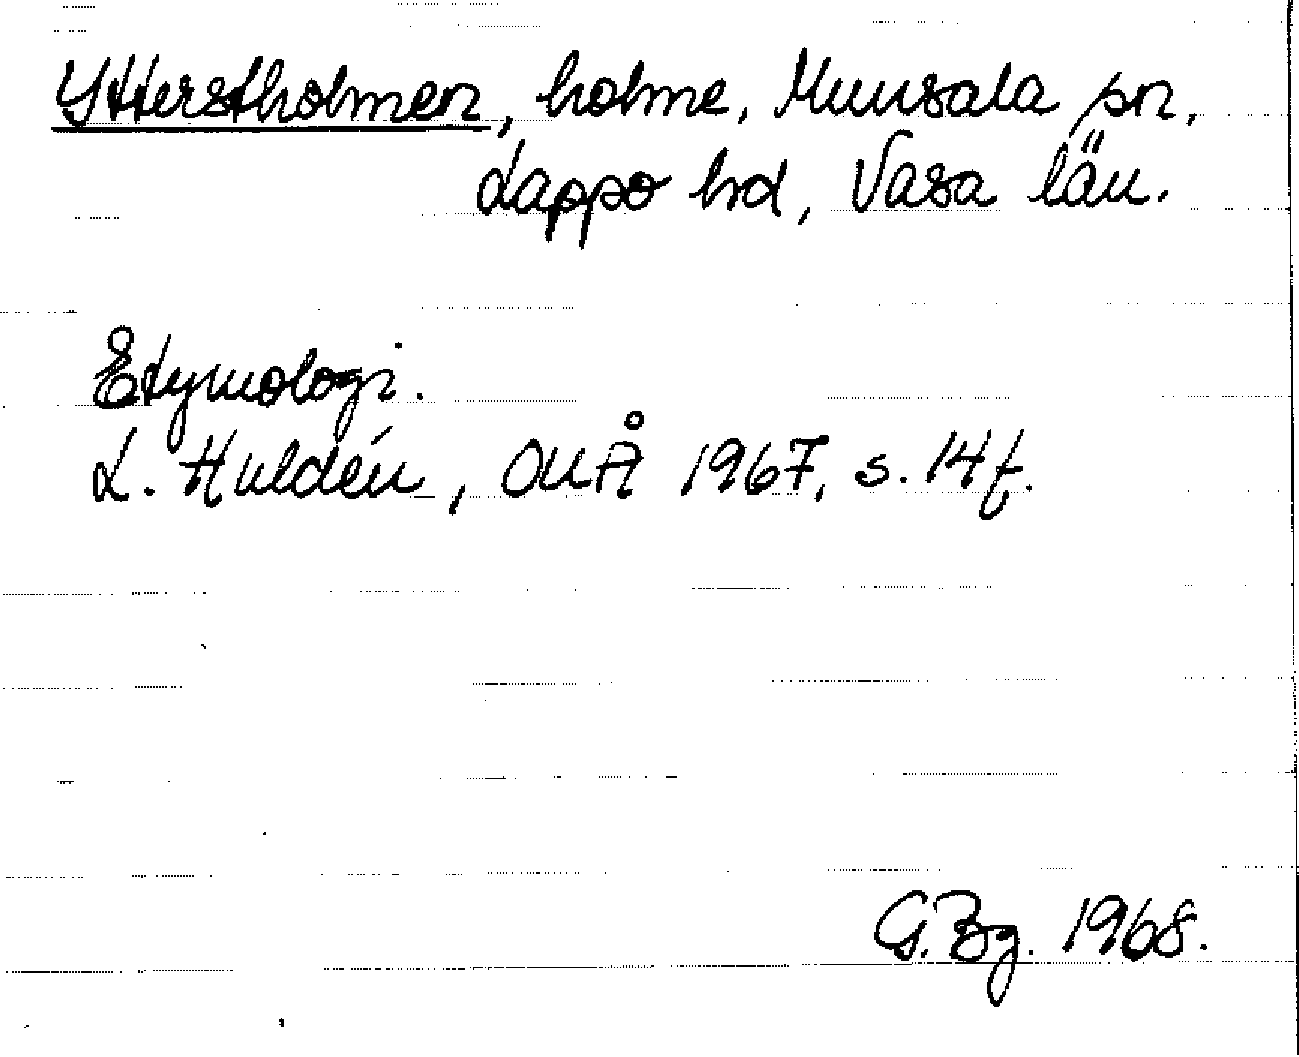 Ytterstholmen, holme, Munsala sn,
Lappo hd, Vasa län.
Etymologi.
L. Huldén, OUÅ 1967, s. 14 f.
G. Bg. 1968.